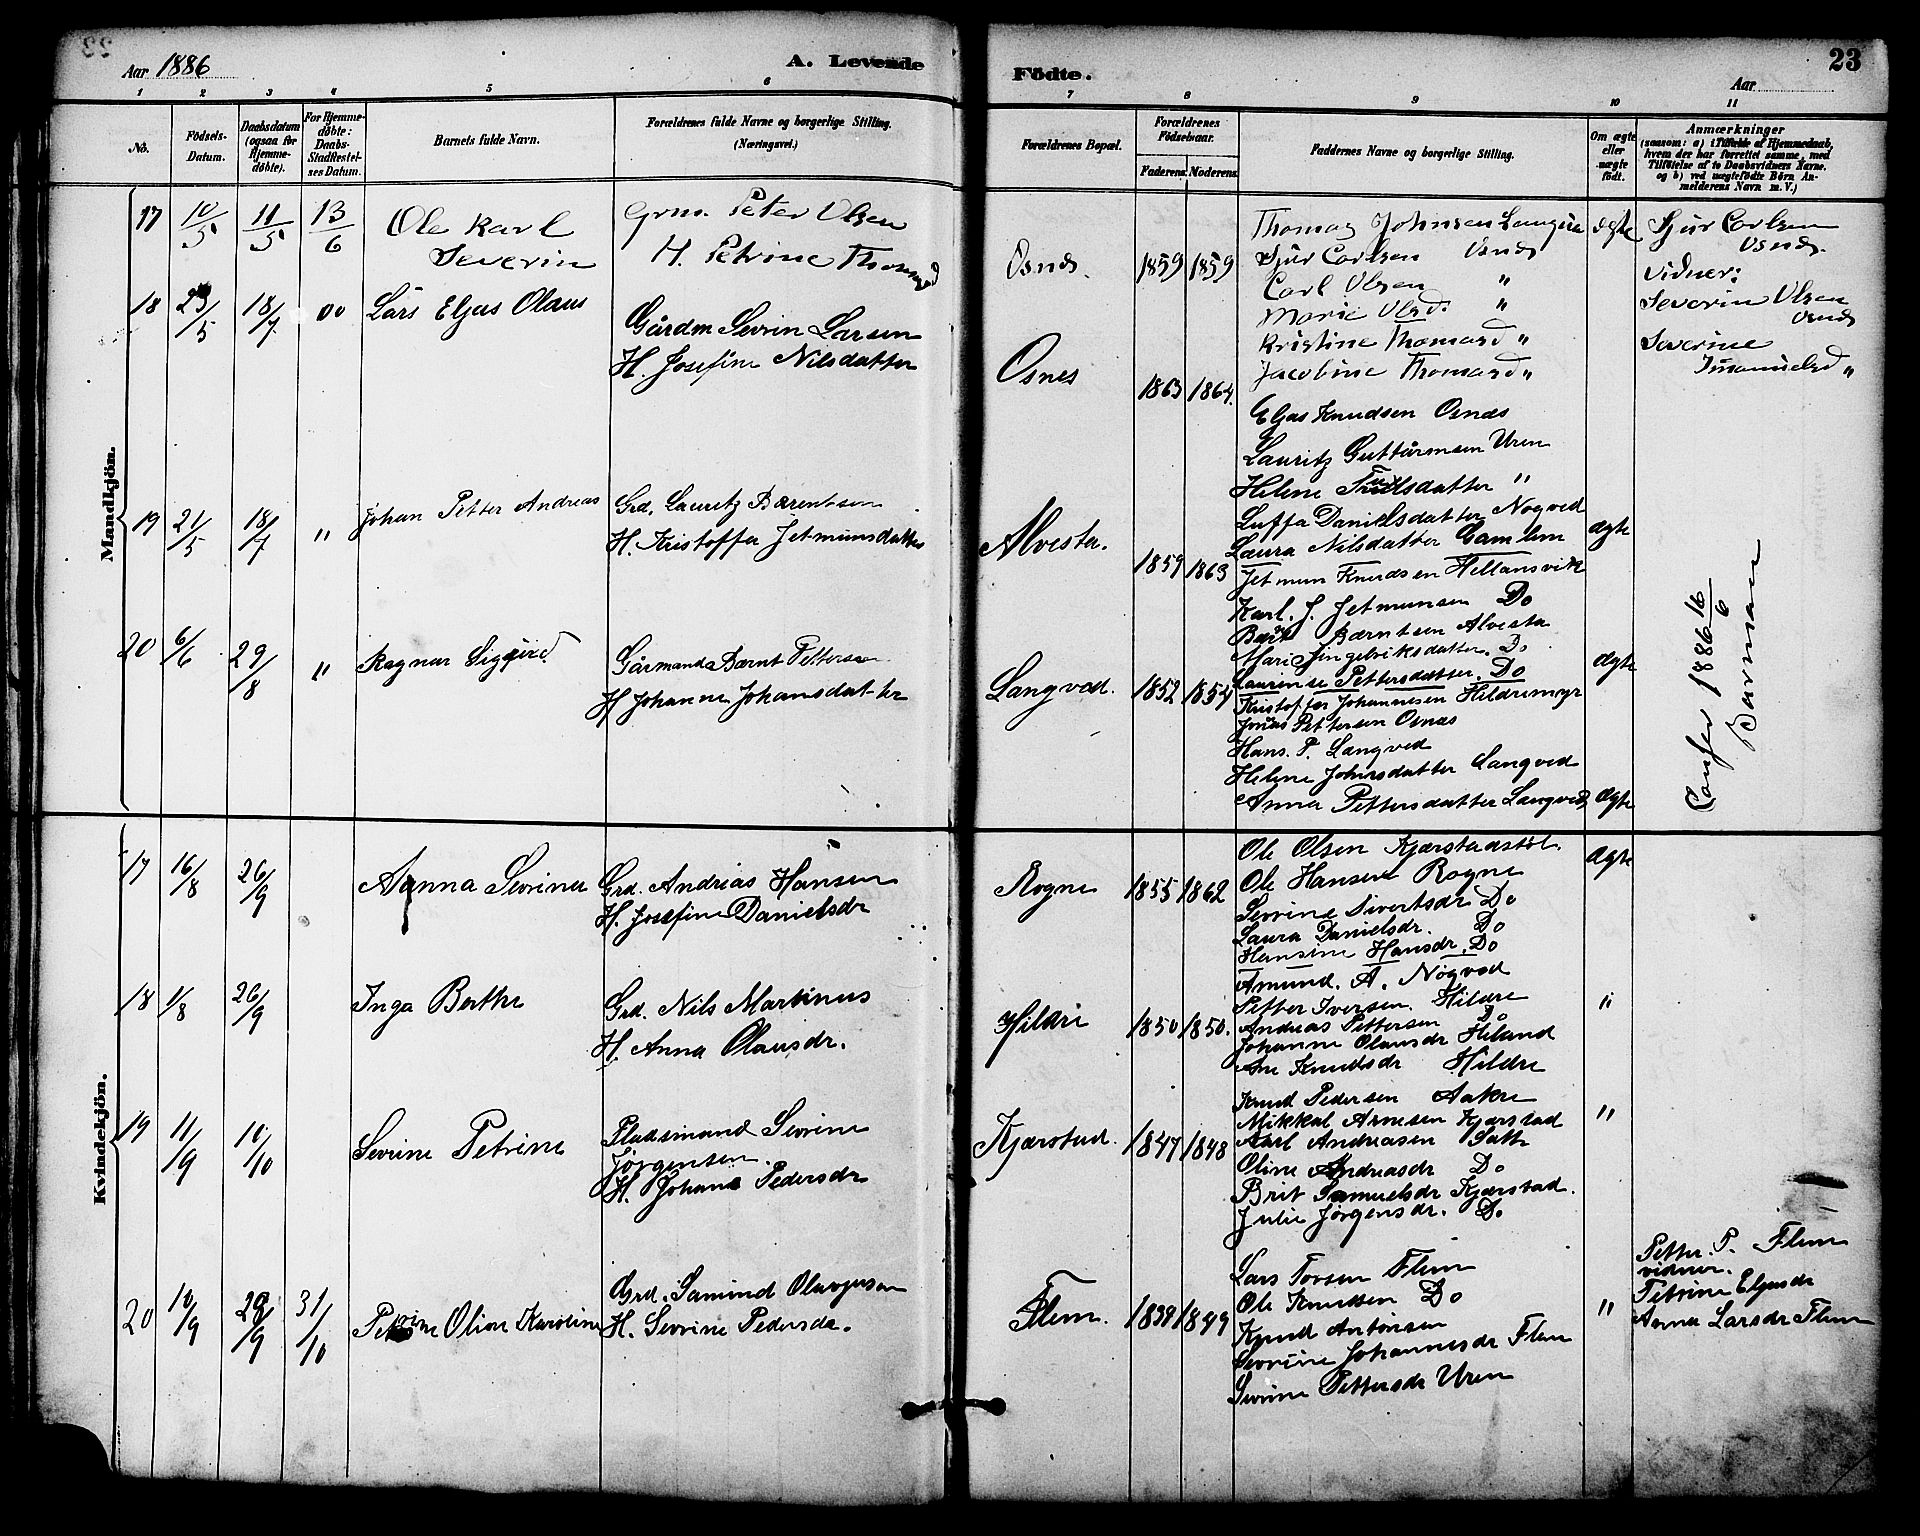 Aar 1886
A. Levende
Födte.
Aar
23
1 2 3 4 5 6 7 8 9 10 11
No.
Födsels-Datum.
Daabsdatum (ogsaa for Hjemme-döbte).
For Hjemme-döbte: Daabs-Stadfæstel-ses Datum.
Barnets fulde Navn.
Forældrenes fulde Navne og borgerlige Stilling. (Næringsvei.)
Forældrenes Bopæl.
Forældrenes Födselsaar.
Faderens. Moderens.
Faddernes Navne og borgerlige Stilling.
Om ægte eller uægte födt.
Anmærkninger
(saasom: a) i Tilfælde af Hjemmedaab,
hvem der har forrettet samme, med
Tilföielse af to Daabsvidners Navne.
og b) ved uægtefödte Börn An-
melderens Navn m. V.)
Mandkjön.
17 10/5 11/5 13/6 Ole Karl
Severin
Grm. Peter Olsen
H. Petrine Thomasd
Osnes. 1859 1859
Thomas Johnsen
Sjur Carlsen Osnes
Carl Olsen "
Marie Olsd. "
Kristine Thomasd "
Jacobine Thomasd "
ægte
Sjur Carlsen
Osnes.
vidner:
Severin Olsen
Osnes
Severine
Imanuelsd "
18 23/5 18/7 00 Lars Eljas Olaus
Gårdm Sevrin Larsen
H. Josefine Nilsdatter
Osnes 1863 1864.
Eljas Knudsen Osnæs
Lauritz Guttormsen Uren
Helene Truelsdatter "
Luffa Danielsdatter Nogved
Laura Nilsdatter Gamlem
ægte
19 21/5 18/7 " Johan Petter Andreas
Grd. Lauritz Bærentsen
H. Kristoffa Jetmunsdatter
Alvesta. 1859 1863
Jetmun Knudsen Hellansvik
Karl. J. Jetmunsen Do
Bærnt Bærntsen Alvesta
Marie Ingebriksdatter. Do
Laurinse Pettersdatter. Do
ægte
20 6/6 29/8 " Ragnar Siggurd
Gårmand Bærnt Petterson
H Johanne Johansdatter
Langved. 1852 1854
Kristoffer Johannesen Hildremyr
Jonas Pettersen Osnæs
Hans. P. Langved
Helene Johnsdatter Langved
Anna Pettersdatter Langved
ægte
1886 16/6
Kvindekjön.
17 16/8 26/9 Anna Sevrine
Grd. Andrias Hansen
H. Josefine Danielsdr
Rogne 1855 1862
Ole Olsen Kjærstadstöl.
Ole Hansen Rogne
Sevrine Sivertsdr Do
Laura Danielsdr. Do
Hansine Hansdr. Do
Ægte
18 1/8 26/9 Inga Berthe
Grd. Nils Martinus
H. Anna Olausdr.
Hildre 1850 1850.
Amund. A. Nögved
Petter Iversen. Hildre
Andreas Pettersen Do
Johanne Olausdr Hiland
Ane Knudsdr Hildre
"
19 11/9 10/10 Sevrine Petrine
Pladsmand Sevrine
Jörgensen.
H. Johane Pedersdr
Kjærstad. 1847 1848
Knud Pedersen Aakre
Mikkal Arnesen Kjærstad
Karl Andreasen Satre
Oline Andreasdr Do
Brit Samuelsdr Kjærstad.
Julie Jørgensdr. Do
"
20 10/9 28/9 31/10 Petrine Oline Karoline
Grd. Samund
H. Sevrine Pedersdr.
Flem. 1839 1849
Lars Torsen Flem
Ole Knudsen Do
Knud Antonsen
Sevrine Johannesdr Flem
Sevrine Pettersdr Uren
"
Petter. P. Flem
vidner.
Petrine Eljasdr
Anna Larsdr Flem